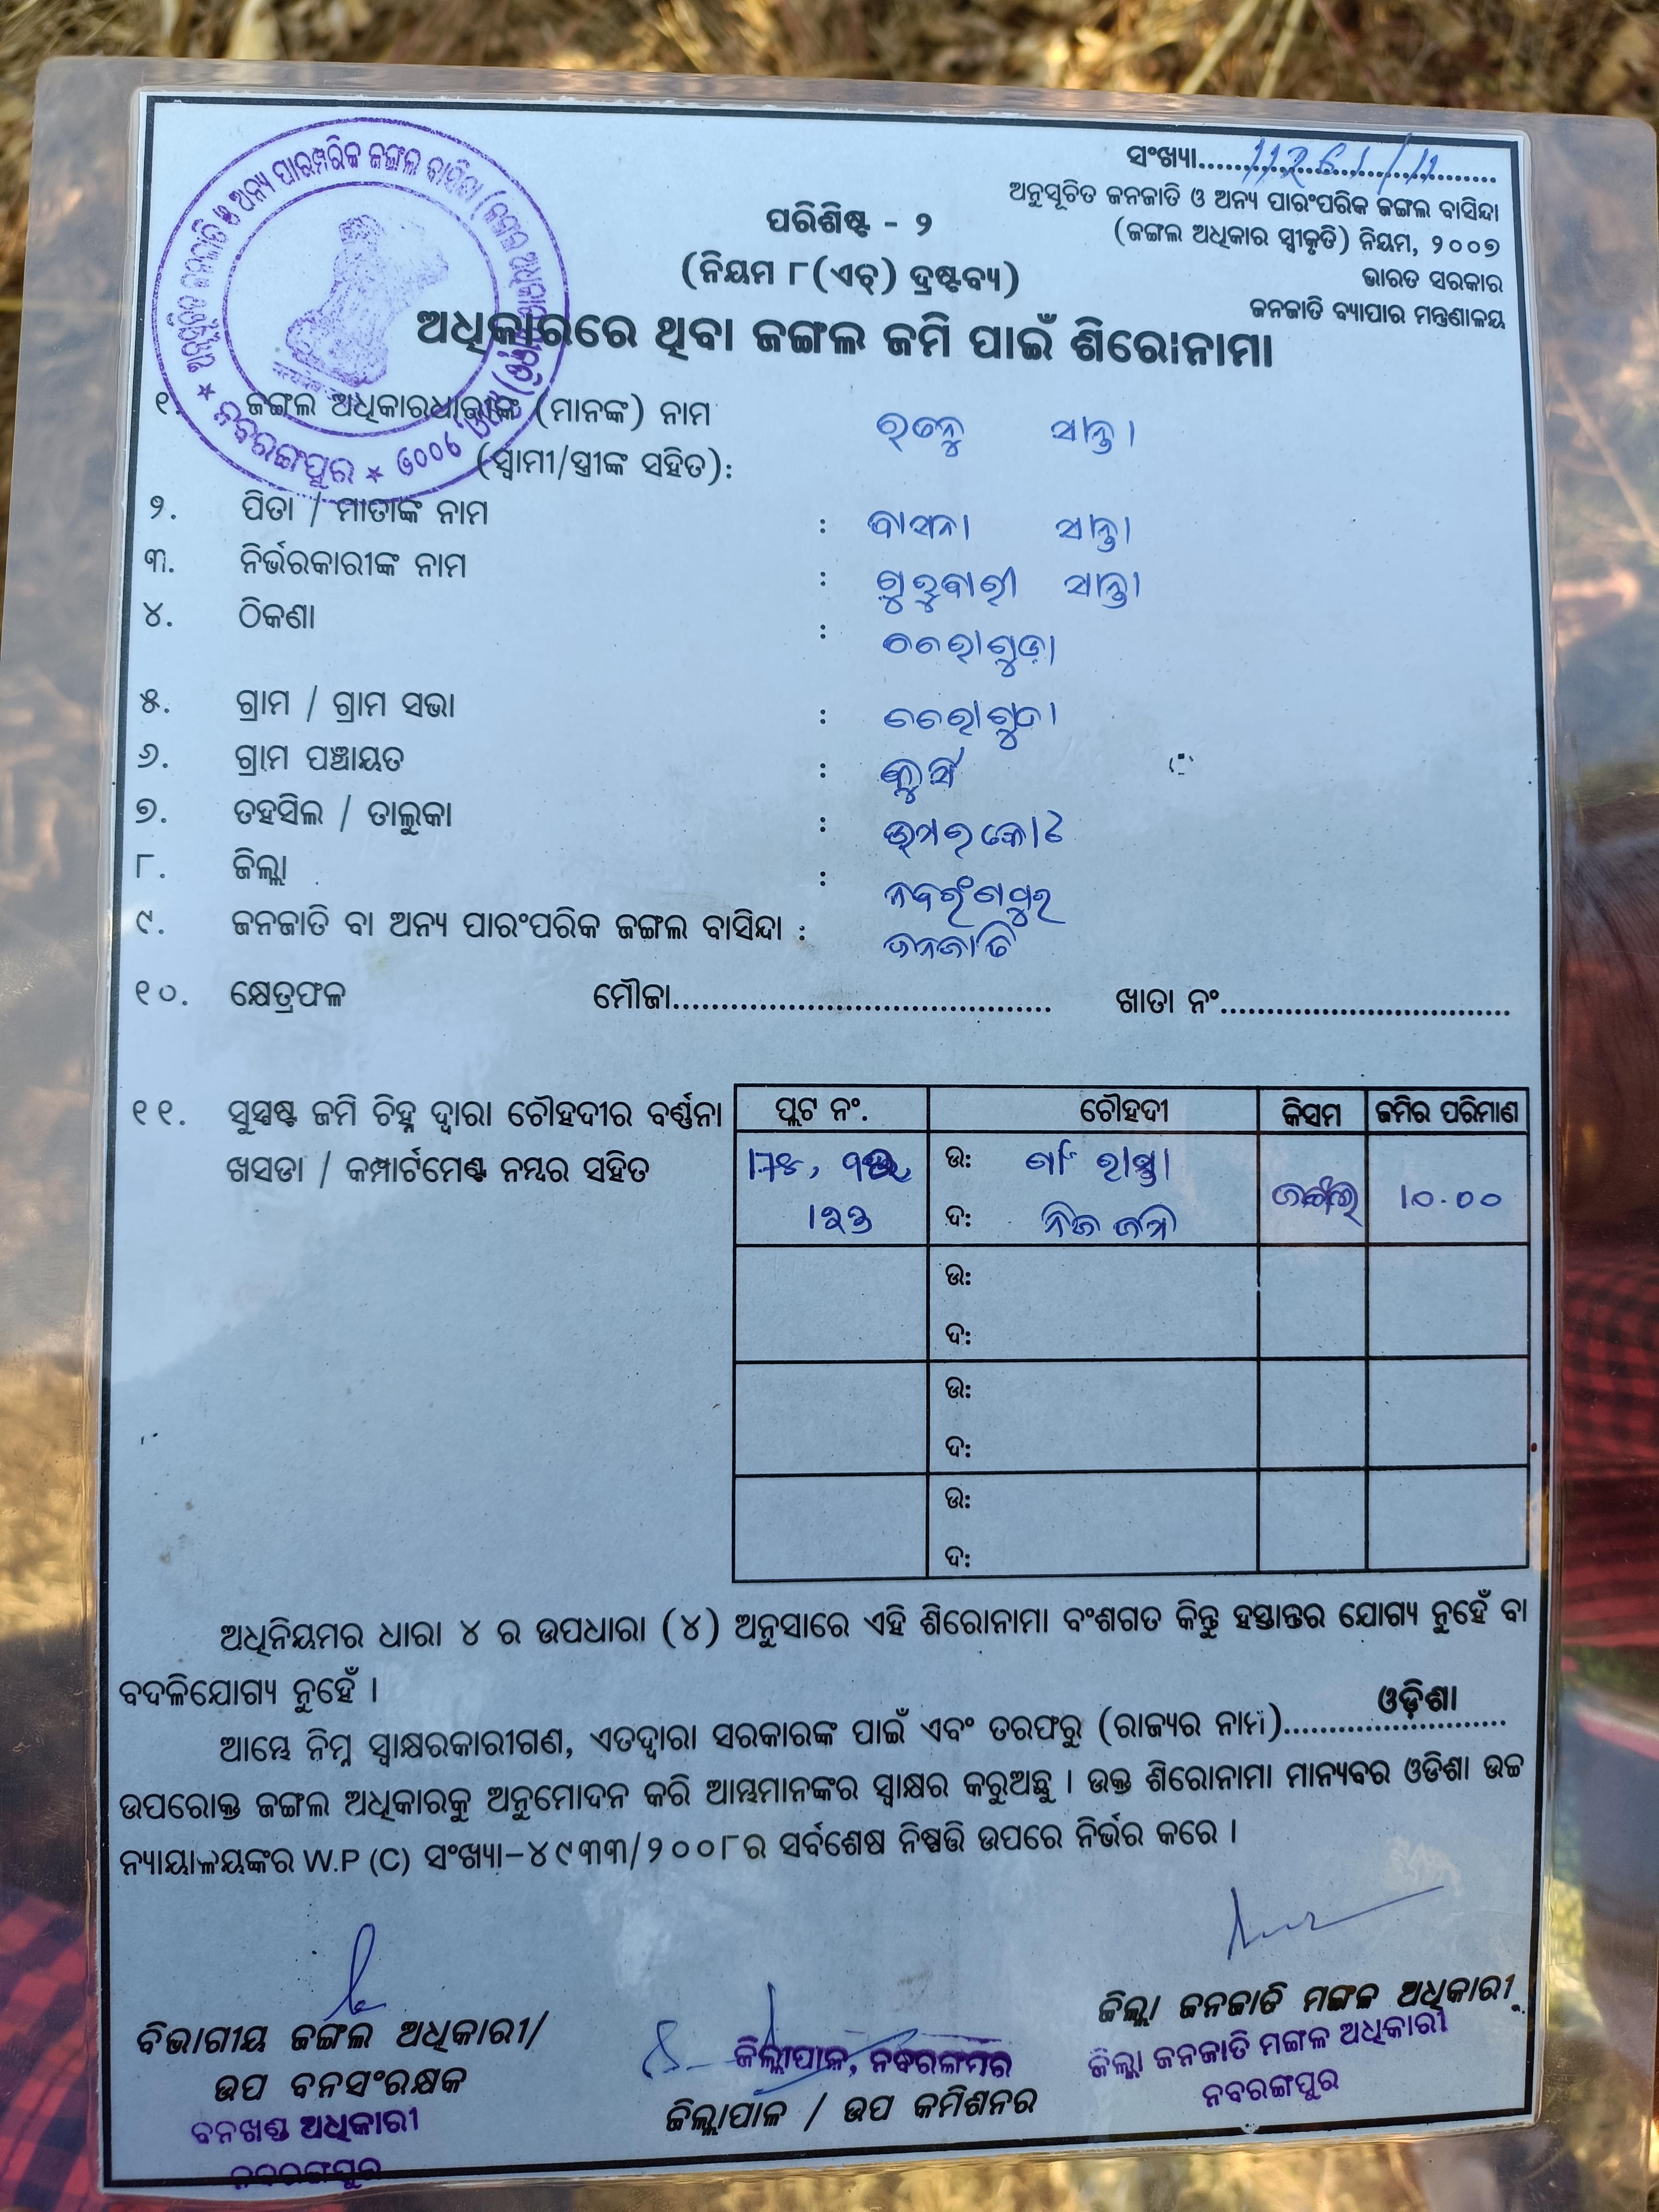 ସଂଖ୍ୟା.....11261/11.....
ଅନୁସୂଚିତ ଜନଜାତି ଓ ଅନ୍ୟ ପାରଂପରିକ ଜଙ୍ଗଲ ବାସିନ୍ଦା
(ଜଙ୍ଗଲ ଅଧିକାର ସ୍ୱୀକୃତି) ନିୟମ, ୨୦୦୭
ଭାରତ ସରକାର
ଜନଜାତି ବ୍ୟାପାର ମନ୍ତ୍ରଣାଳୟ
ପରିଶିଷ୍ଟ - ୨
(ନିୟମ ୮(ଏଚ୍) ଦ୍ରଷ୍ଟବ୍ୟ)
ଅଧିକାରରେ ଥିବା ଜଙ୍ଗଲ ଜମି ପାଇଁ ଶିରୋନାମା
୧. ଜଙ୍ଗଲ ଅଧିକାରଧାରୀଙ୍କ (ମାନଙ୍କ) ନାମ ସାନ୍ତା
(ସ୍ୱାମୀ/ସ୍ତ୍ରୀଙ୍କ ସହିତ):
୨. ପିତା / ମାତାଙ୍କ ନାମ : ବାସନା ସାନ୍ତା
୩. ନିର୍ଭରକାରୀଙ୍କ ନାମ : ଗୁରୁବାରୀ ସାନ୍ତା
୪. ଠିକଣା :
୫. ଗ୍ରାମ / ଗ୍ରାମ ସଭା :
୬. ଗ୍ରାମ ପଞ୍ଚାୟତ :
୭. ତହସିଲ / ତାଲୁକା : ଉମରକୋଟ
୮. ଜିଲ୍ଲା : ନବରଂଗପୁର
୯. ଜନଜାତି ବା ଅନ୍ୟ ପାରଂପରିକ ଜଙ୍ଗଲ ବାସିନ୍ଦା : ଜନଜାତି
୧୦. କ୍ଷେତ୍ରଫଳ ମୌଜା........................................ ଖାତା ନଂ...............................
୧୧. ସୁସ୍ପଷ୍ଟ ଜମି ଚିହ୍ନ ଦ୍ୱାରା ଚୌହଦୀର ବର୍ଣ୍ଣନା
ଖସଡା / କମ୍ପାର୍ଟମେଣ୍ଟ ନମ୍ବର ସହିତ
ପ୍ଲଟ ନଂ. ଚୌହଦୀ କିସମ ଜମିର ପରିମାଣ
ଉ: ରାସ୍ତା
ଦ: ନିଜ ଜମି
ଜଙ୍ଗଲ 10.00
ଉ:
ଦ:
ଉ:
ଦ:
ଉ:
ଦ:
ଅଧିନିୟମର ଧାରା ୪ ର ଉପଧାରା (୪) ଅନୁସାରେ ଏହି ଶିରୋନାମା ବଂଶଗତ କିନ୍ତୁ ହସ୍ତାନ୍ତର ଯୋଗ୍ୟ ନୁହେଁ ବା
ବଦଳିଯୋଗ୍ୟ ନୁହେଁ ।
ଆମ୍ଭେ ନିମ୍ନ ସ୍ୱାକ୍ଷରକାରୀଗଣ, ଏତଦ୍ୱାରା ସରକାରଙ୍କ ପାଇଁ ଏବଂ ତରଫରୁ (ରାଜ୍ୟର ନାମ).....ଓଡ଼ିଶା.....
ଉପରୋକ୍ତ ଜଙ୍ଗଲ ଅଧିକାରକୁ ଅନୁମୋଦନ କରି ଆମ୍ଭମାନଙ୍କର ସ୍ୱାକ୍ଷର କରୁଅଛୁ । ଉକ୍ତ ଶିରୋନାମା ମାନ୍ୟବର ଓଡିଶା ଉଚ୍ଚ
ନ୍ୟାୟାଳୟଙ୍କର W.P (C) ସଂଖ୍ୟା–୪୯୩୩/୨୦୦୮ର ସର୍ବଶେଷ ନିଷ୍ପତ୍ତି ଉପରେ ନିର୍ଭର କରେ ।
ବିଭାଗୀୟ ଜଙ୍ଗଲ ଅଧିକାରୀ/
ଉପ ବନସଂରକ୍ଷକ
ବନଖଣ୍ଡ ଅଧିକାରୀ
ନବରଙ୍ଗପୁର
ଜିଲ୍ଲାପାଳ, ନବରଙ୍ଗପୁର
ଜିଲ୍ଲାପାଳ / ଉପ କମିଶନର
ଜିଲ୍ଲା ଜନଜାତି ମଙ୍ଗଳ ଅଧିକାରୀ
ଜିଲ୍ଲା ଜନଜାତି ମଙ୍ଗଳ ଅଧିକାରୀ
ନବରଙ୍ଗପୁର